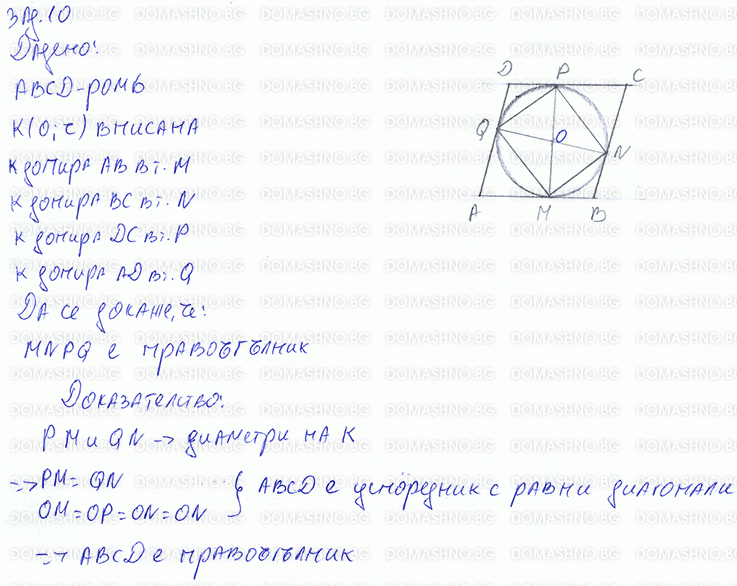 Зад. 10
Дадено:
ABCD - РОМБ
K(O; r) ВПИСАНА
К допира AB в т. M
К допира BC в т. N
К допира DC в т. P
К допира AD в т. Q
Да се докаже, че:
MNPQ е правоъгълник
Доказателство:
PM и QN → диаметри на K
=> PM = QN
OM = OP = ON = ON } ABCD е успоредник с равни диагонали
=> ABCD е правоъгълник
D P C
Q O N
A M B
DOMASHNO.BG